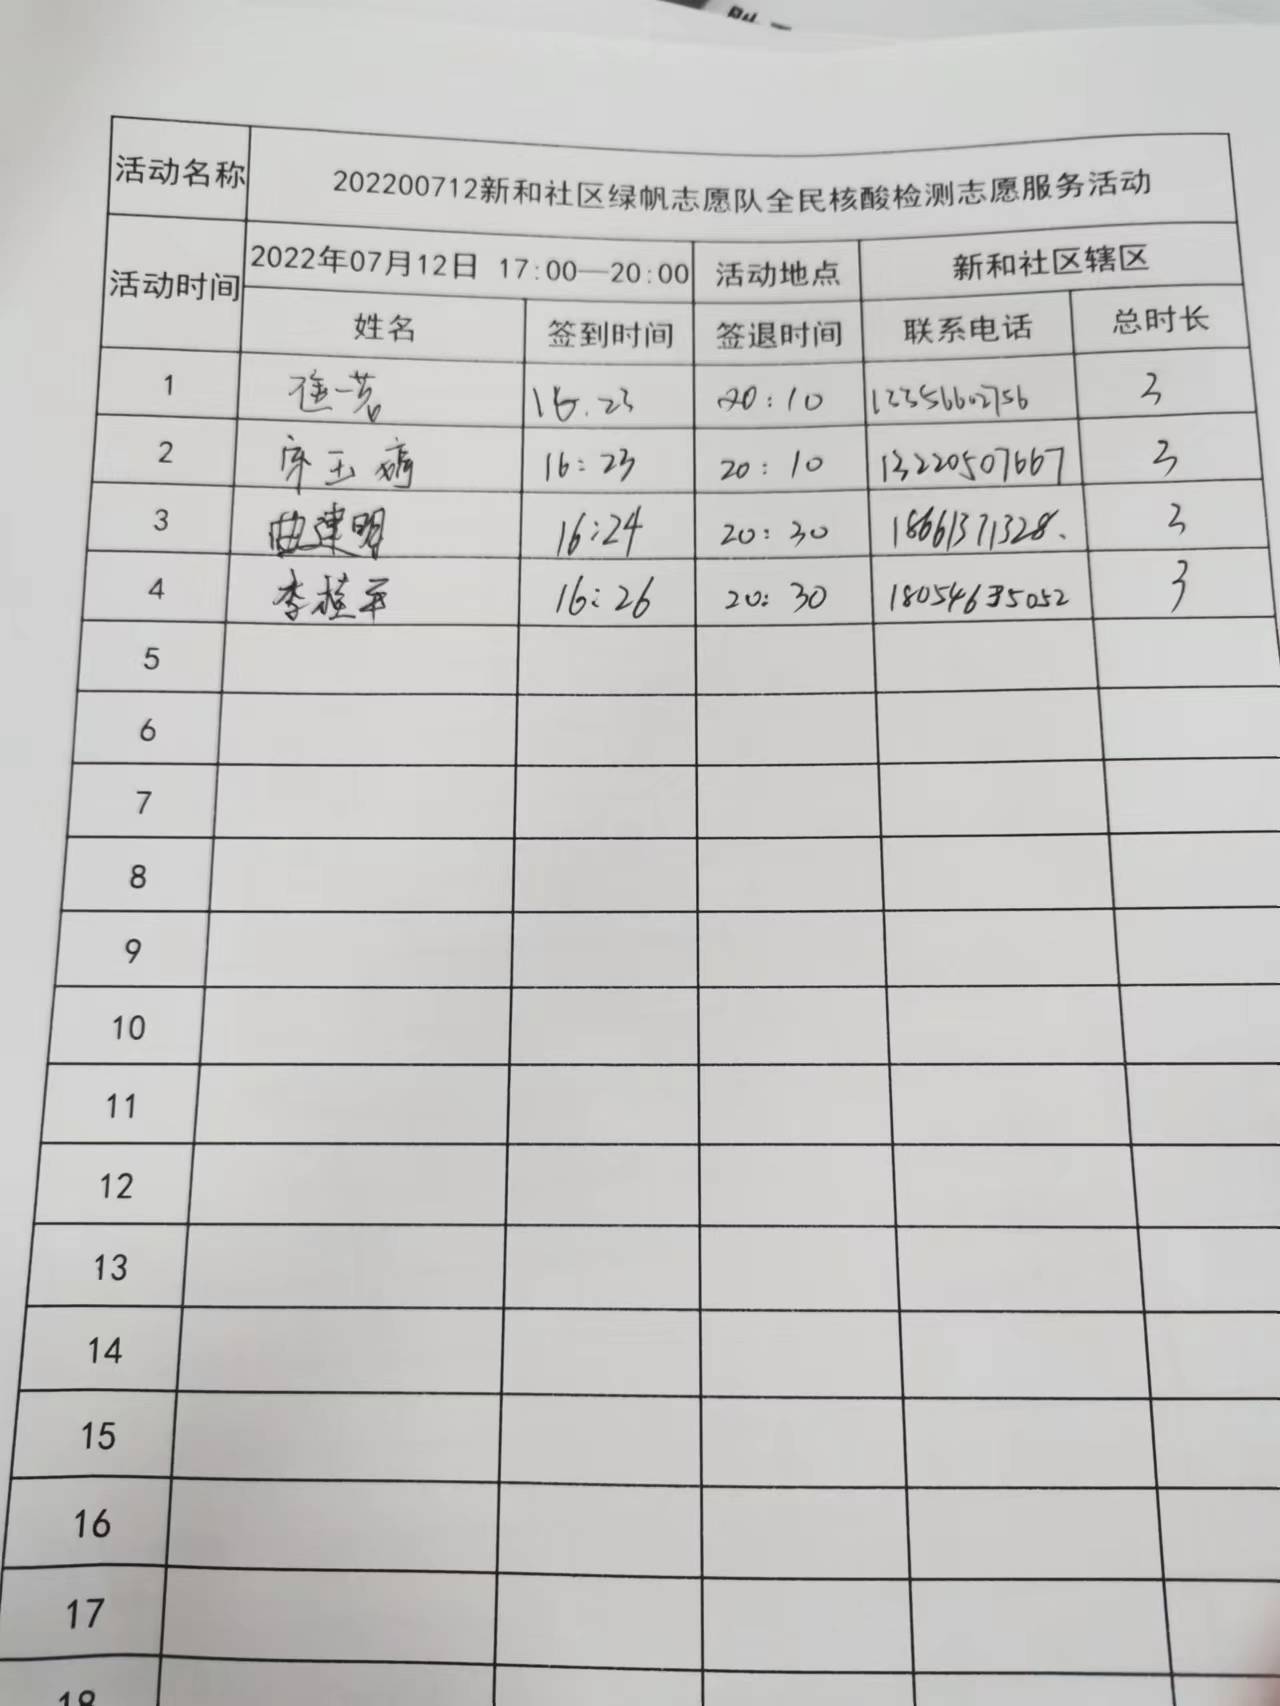 活动名称 202200712新和社区绿帆志愿队全民核酸检测志愿服务活动
活动时间 2022年07月12日 17:00—20:00 活动地点 新和社区辖区
姓名 签到时间 签退时间 联系电话 总时长
1 一芳 16.23 20:10 3
2 玉 16:23 20:10 13220507667 3
3 曲建明 16:24 20:30 18661371328. 3
4 李桂平 16:26 20:30 18054635052 3
5
6
7
8
9
10
11
12
13
14
15
16
17
18